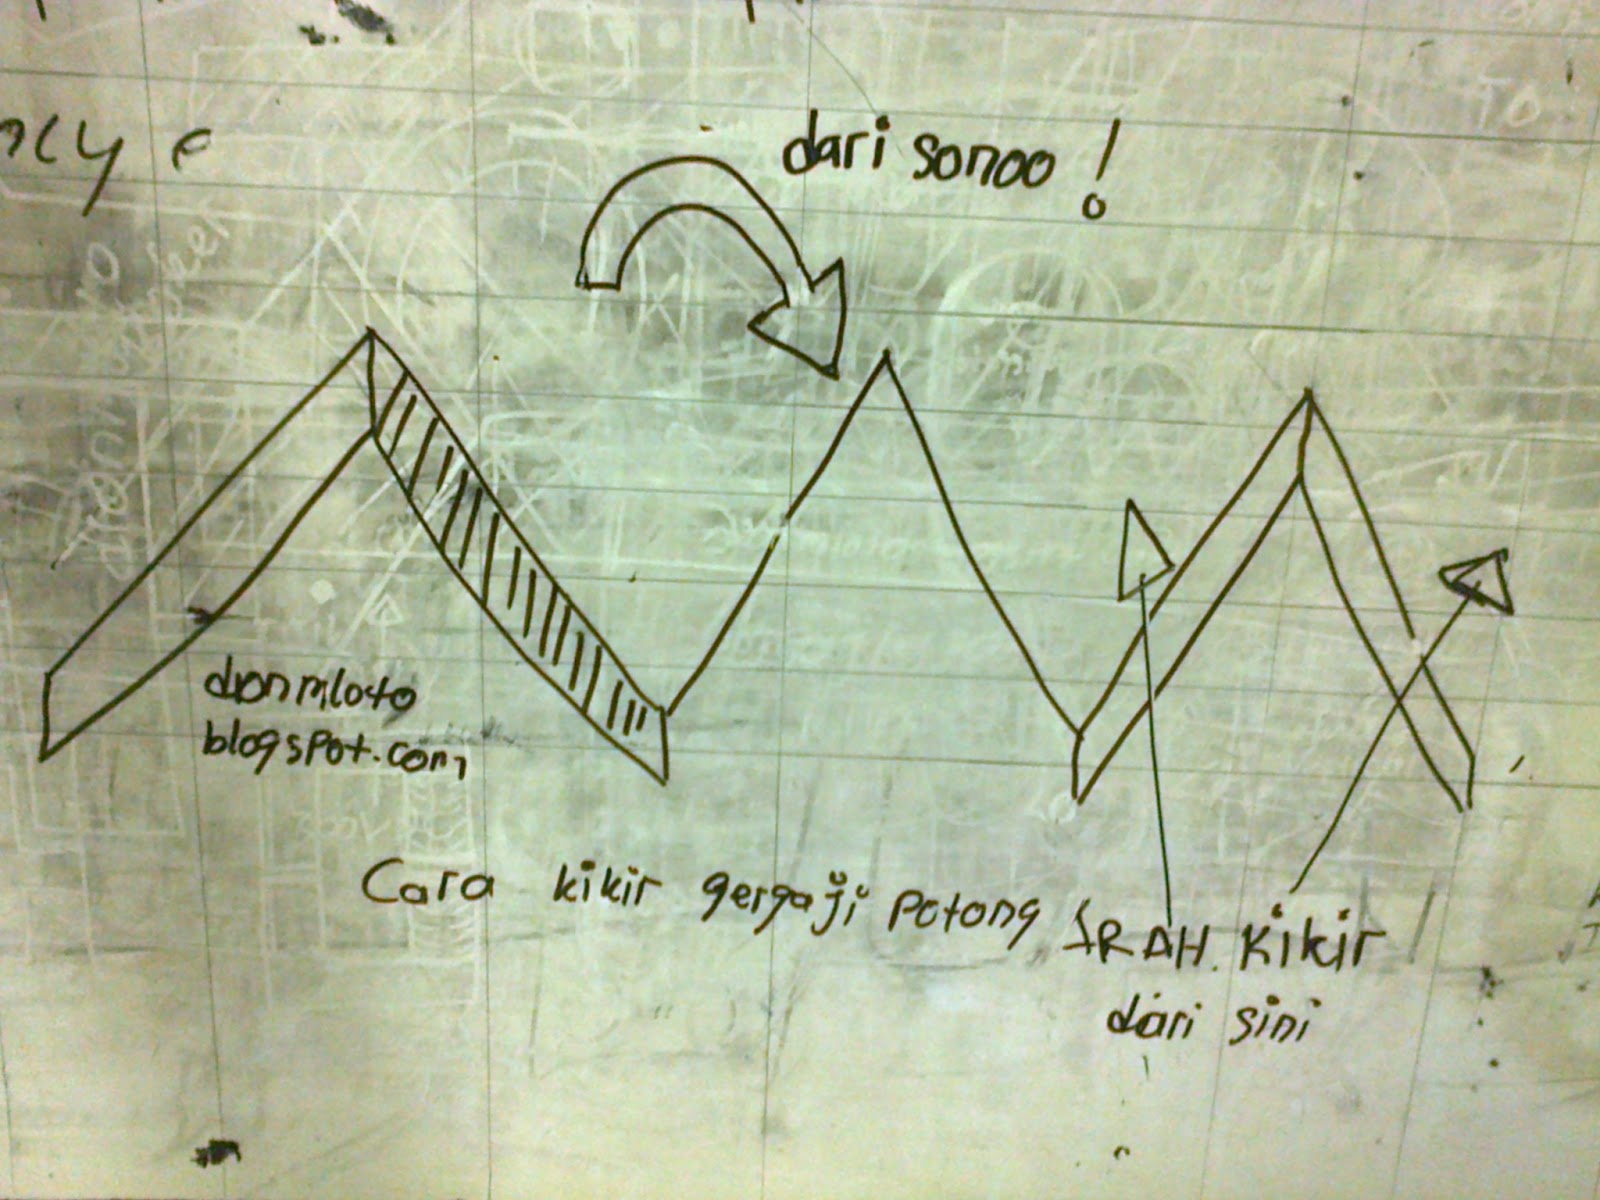 dari sonoo !
dionmloto
blogspot.com
Cara kikir gergaji potong
ARAH. Kikir
dari sini